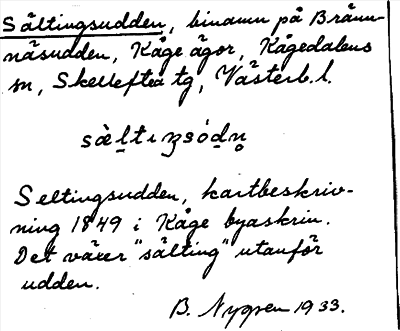 Sältingsudden, binamn på Bränn-
näsudden, Kåge ägor, Kågedalens
sn, Skellefteå tg, Västerb. l.
Seltingsudden, kartbeskriv-
ning 1849 i Kåge byaskrin.
Det växer "sälting" utanför
udden.
B. Nygren 1933.